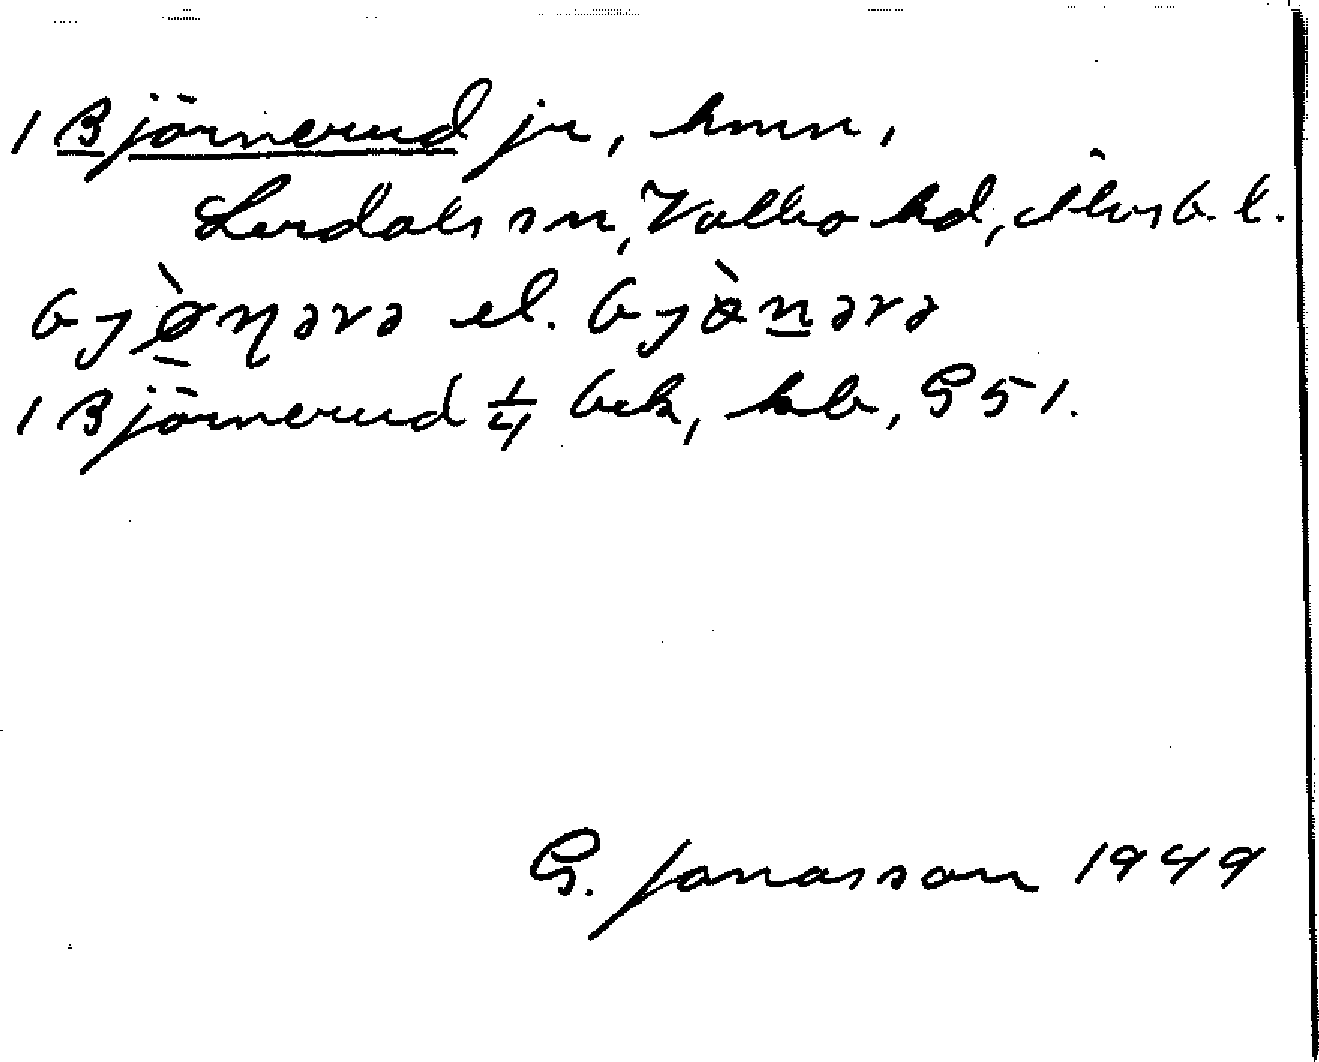 1 Björnerud jr, hmn,
Lerdals sn, Valbo hd, Älvsb. l.
bjø̀ṇərə el. bjø̀nərə
1 Björnerud 1/4 bek, kb, G 51.
G. Jonasson 1949